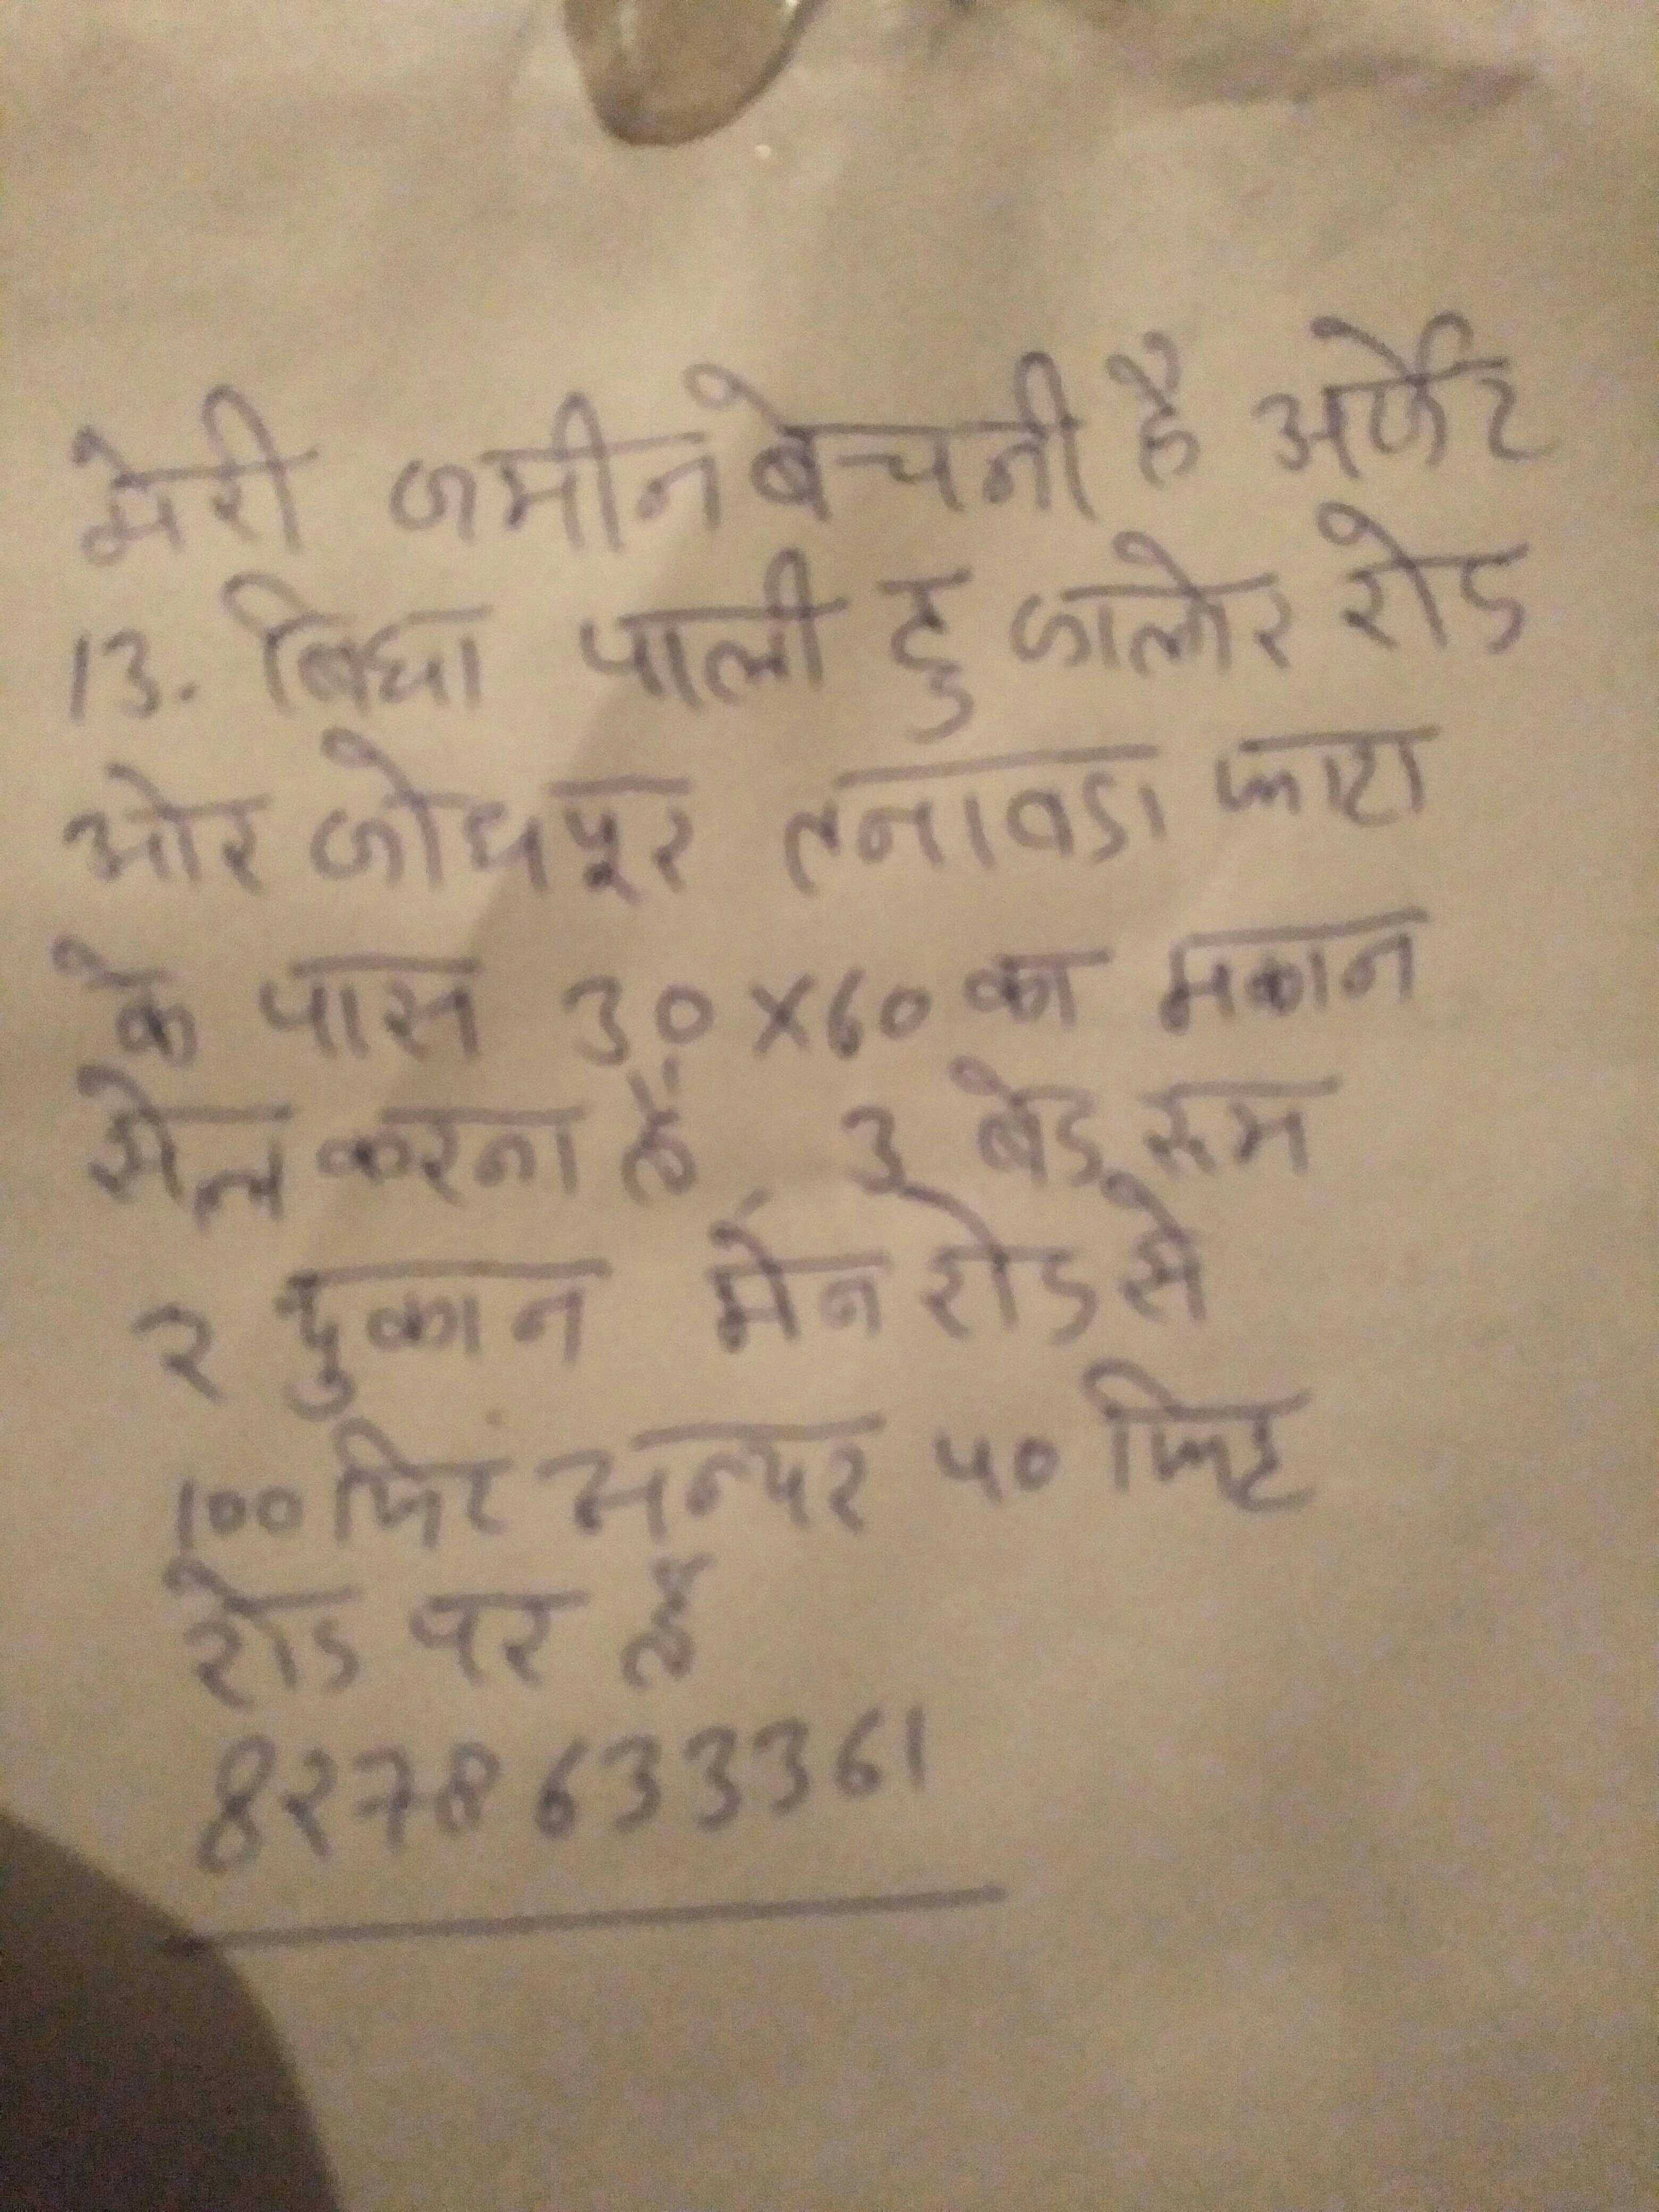 मेरी जमीन बेचनी है अर्फेट
13. बिघा पाली टु जालोर रोड
ओर जोधपूर तनावडा फाटा
के पास 30x60 का मकान
सेल करना हैं 3 बेड रूम
2 दुकान मेंन रोड से
100 फिट अन्दर 40 फिट
रोड पर हैं
8278633361